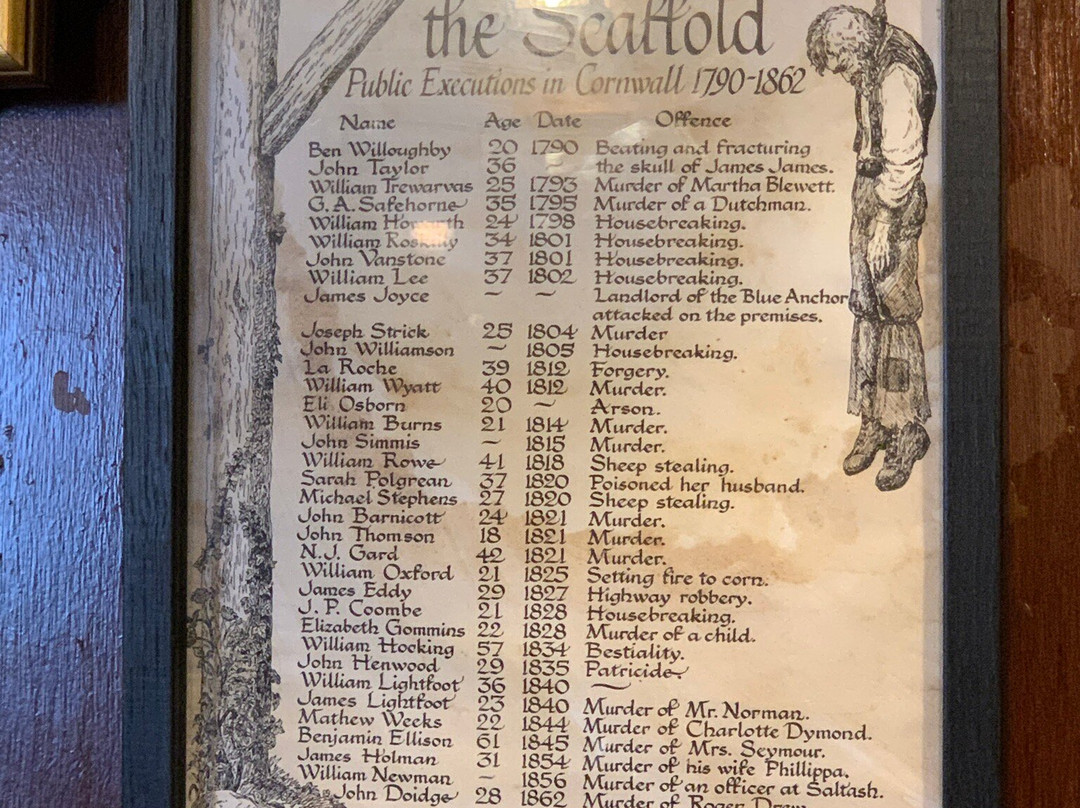 the Scaffold
Public Executions in Cornwall 1790-1862
Name Age Date Offence
Ben Willoughby 20 1790 Beating and fracturing
John Taylor 36 ~ the skull of James James.
William Trewarvas 25 1793 Murder of Martha Blewett.
G. A. Safehorne 35 1795 Murder of a Dutchman.
William 24 1798 Housebreaking.
William 34 1801 Housebreaking.
John Vanstone 37 1801 Housebreaking.
William Lee 37 1802 Housebreaking.
James Joyce ~ ~ Landlord of the Blue Anchor
attacked on the premises.
Joseph Strick 25 1804 Murder
John Williamson ~ 1805 Housebreaking.
La Roche 39 1812 Forgery.
William Wyatt 40 1812 Murder.
Eli Osborn 20 ~ Arson.
William Burns 21 1814 Murder.
John Simmis ~ 1815 Murder.
William Rowe 41 1818 Sheep stealing.
Sarah Polgrean 37 1820 Poisoned her husband.
Michael Stephens 27 1820 Sheep stealing.
John Barnicott 24 1821 Murder.
John Thomson 18 1821 Murder.
N.J. Gard 42 1821 Murder.
William Oxford 21 1825 Setting fire to corn.
James Eddy 29 1827 Highway robbery.
J. P. Coombe 21 1828 Housebreaking.
Elizabeth Gommins 22 1828 Murder of a child.
William Hocking 57 1834 Bestiality.
John Henwood 29 1835 Patricide
William Lightfoot 36 1840 ~
James Lightfoot 23 1840 Murder of Mr. Norman.
Mathew Weeks 22 1844 Murder of Charlotte Dymond.
Benjamin Ellison 61 1845 Murder of Mrs. Seymour.
James Holman 31 1854 Murder of his wife Phillippa.
William Newman ~ 1856 Murder of an officer at Saltash.
John Doidge 28 1862 Murder of Roger